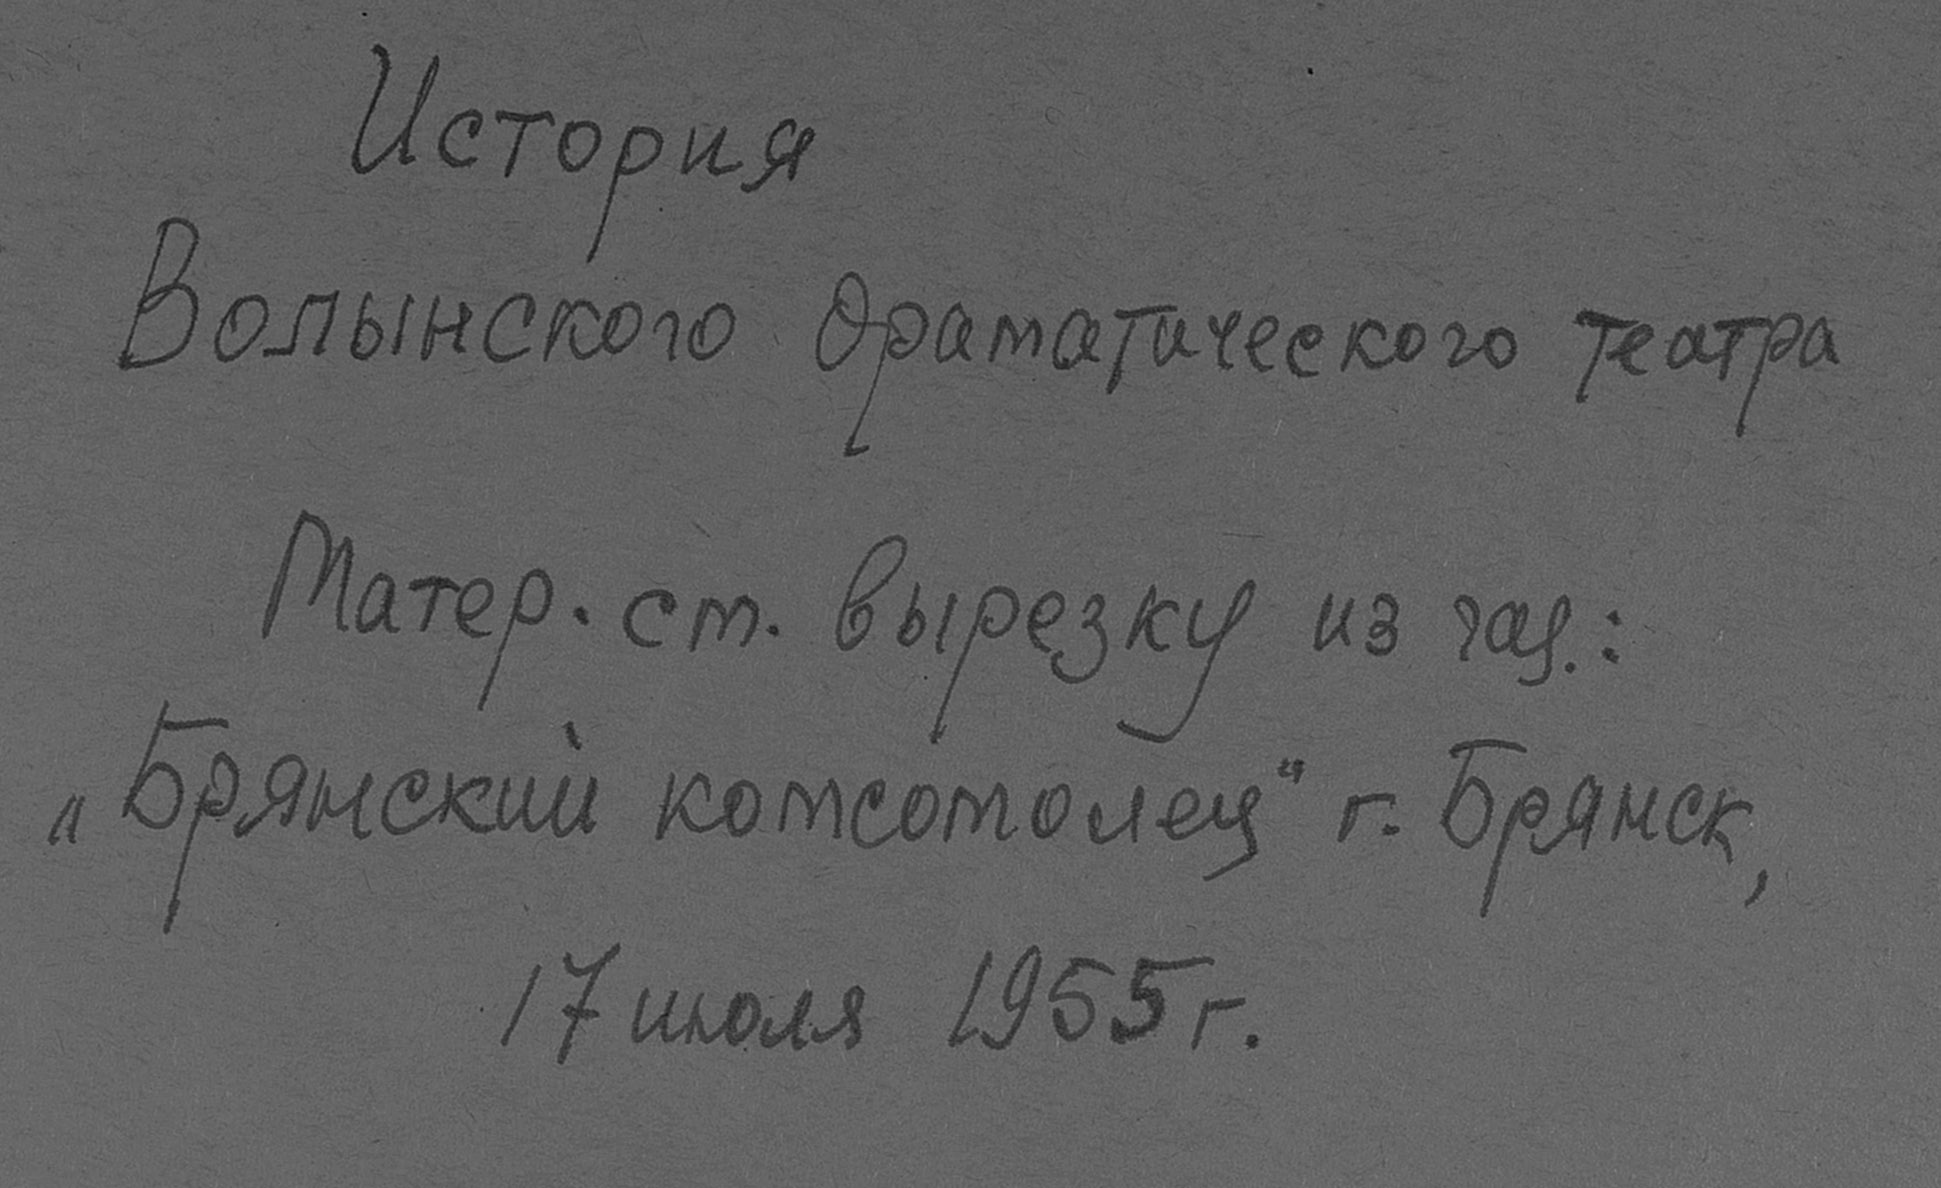 История
Волынского драматического театра
Матер. ст. вырезку из газ.:
„Брянский комсомолец“ г. Брянск,
17 июля 1955 г.